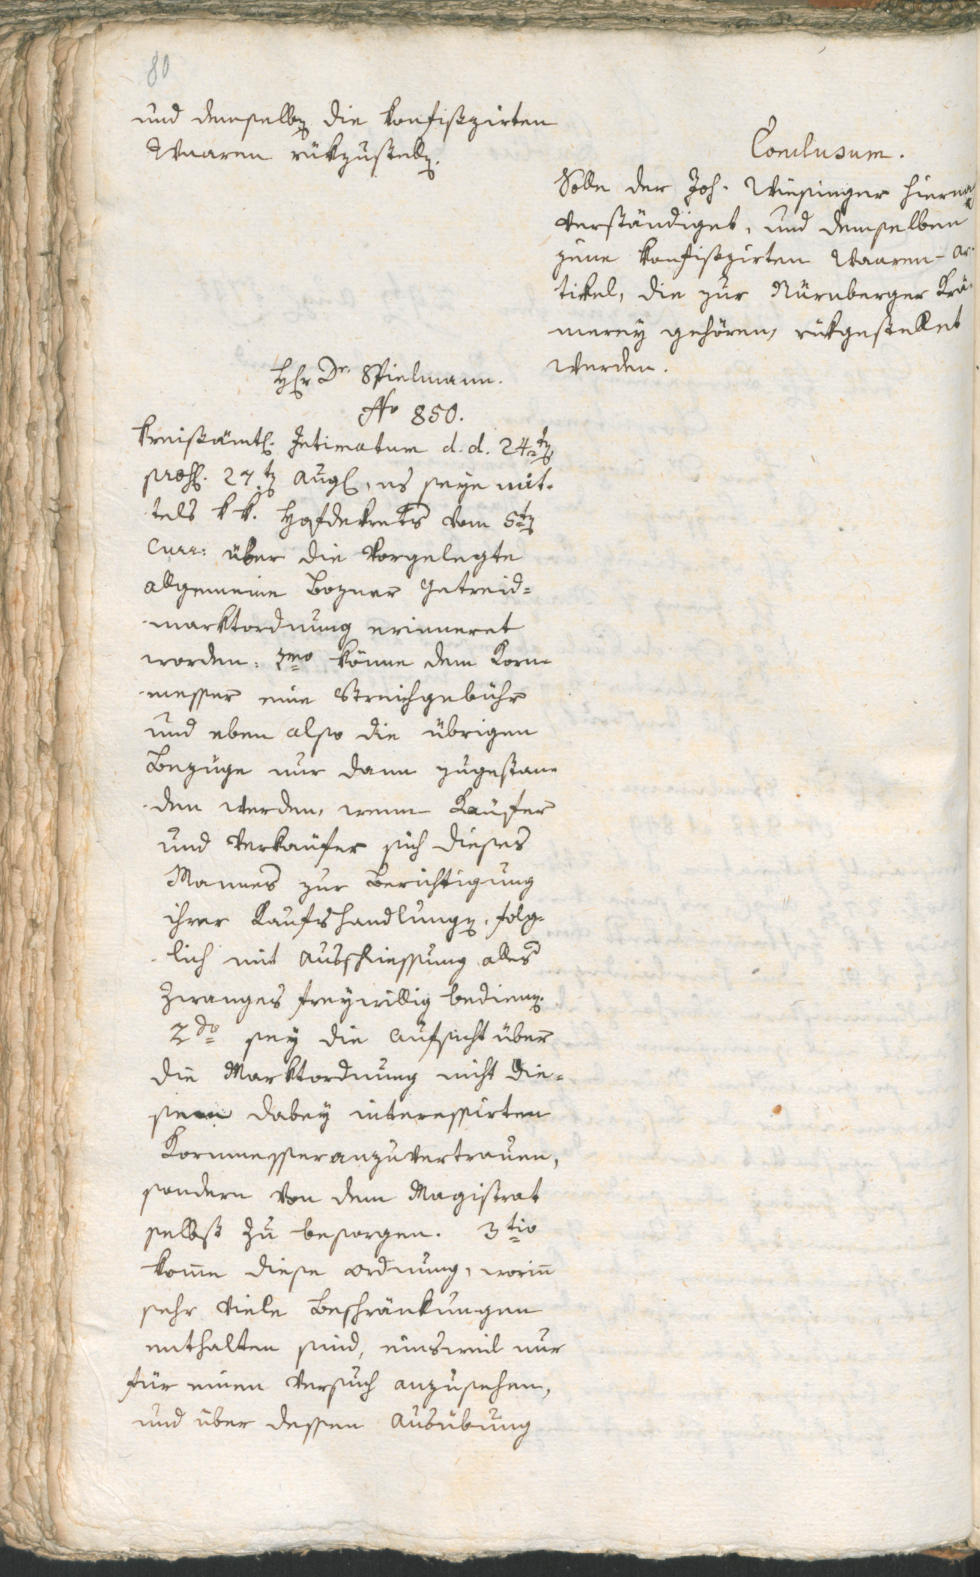 80
und demselben die konfiszirten
Waaren rükzustellen.
Conclusum.
Solle der Joh. Wiesinger hierna
verständiget, und demselben
jene konfiszirten Waaren-Ar-
tikel, die zur Nürnberger Krä-
merey gehören, rükgestellet
werden.
Hr Dr. Spielmann.
No 850.
Kreisämtl. Intimatum d. d. 24ten
praes. 27.ten Aug., es seye mit-
tels kk. Hofdekrets vom 5ten
curr: über die vorgelegte
allgemeine Bozner Getreid-
marktordnung erinneret
worden: 1mo könne dem Korn-
messer eine Streichgebühr
und eben also die übrigen
Bezüge nur dann zugestan-
den werden, wenn Käufer
und Verkäufer sich dieses
Mannes zur Berichtigung
ihrer Kaufshandlungen, folg-
lich mit Ausschliessung alles
Zwanges freywillig bedienen.
2do sey die Aufsicht über
die Marktordnung nicht die-
sem dabey interessirten
Kornmesser anzuvertrauen,
sondern von dem Magistrat
selbst zu besorgen. 3tio
kom̄e diese Ordnung, worin̄
sehr viele Beschränkungen
enthalten sind, einsweil nur
für einen Versuch anzusehen,
und über dessen Ausübung